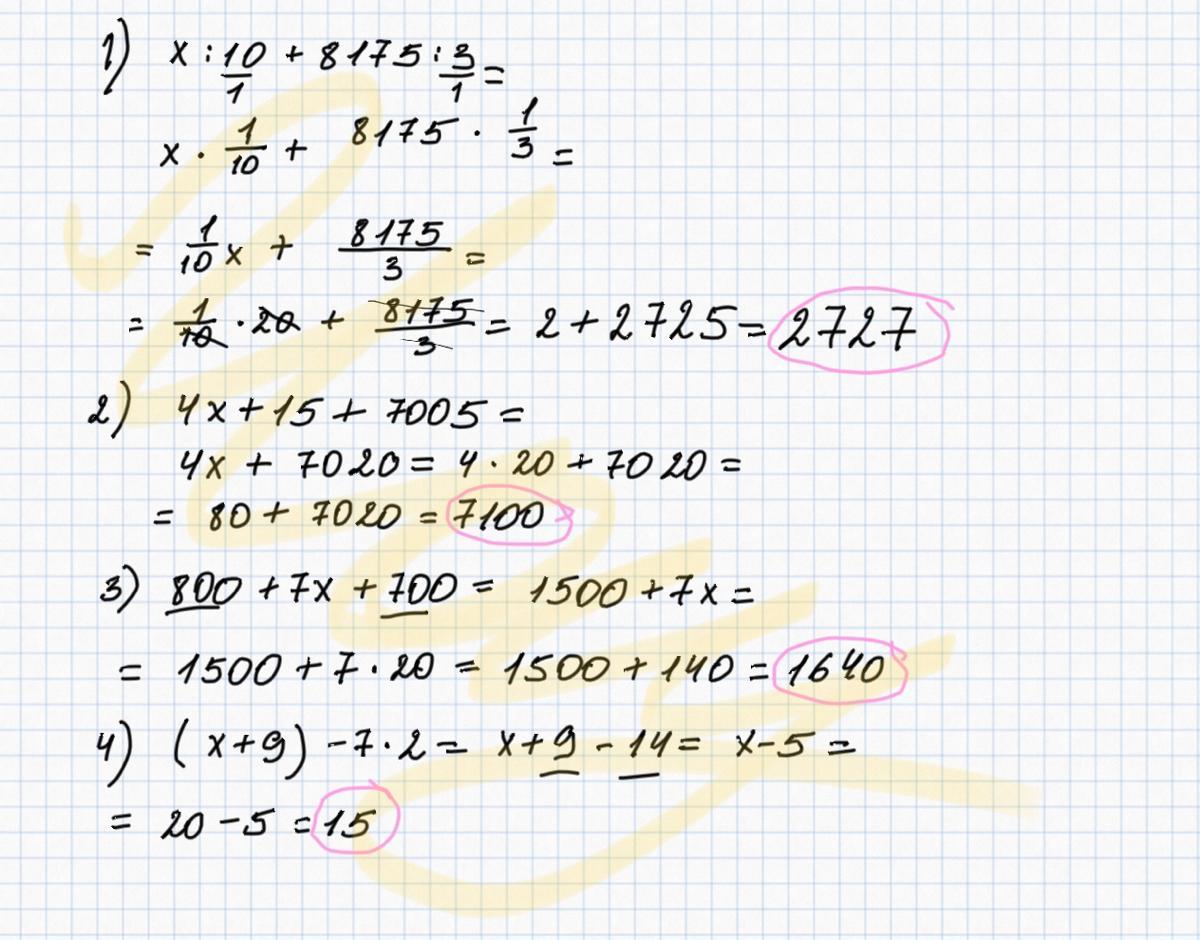 1) x : 10/1 + 8175 : 3/1 =
x · 1/10 + 8175 · 1/3 =
= 1/10 x + 8175/3 =
= 1/10 · 20 + 8175/3 = 2 + 2725 = 2727
2) 4x + 15 + 7005 =
4x + 7020 = 4 · 20 + 7020 =
= 80 + 7020 = 7100
3) 800 + 7x + 700 = 1500 + 7x =
= 1500 + 7 · 20 = 1500 + 140 = 1640
4) (x+9) - 7 · 2 = x + 9 - 14 = x - 5 =
= 20 - 5 = 15